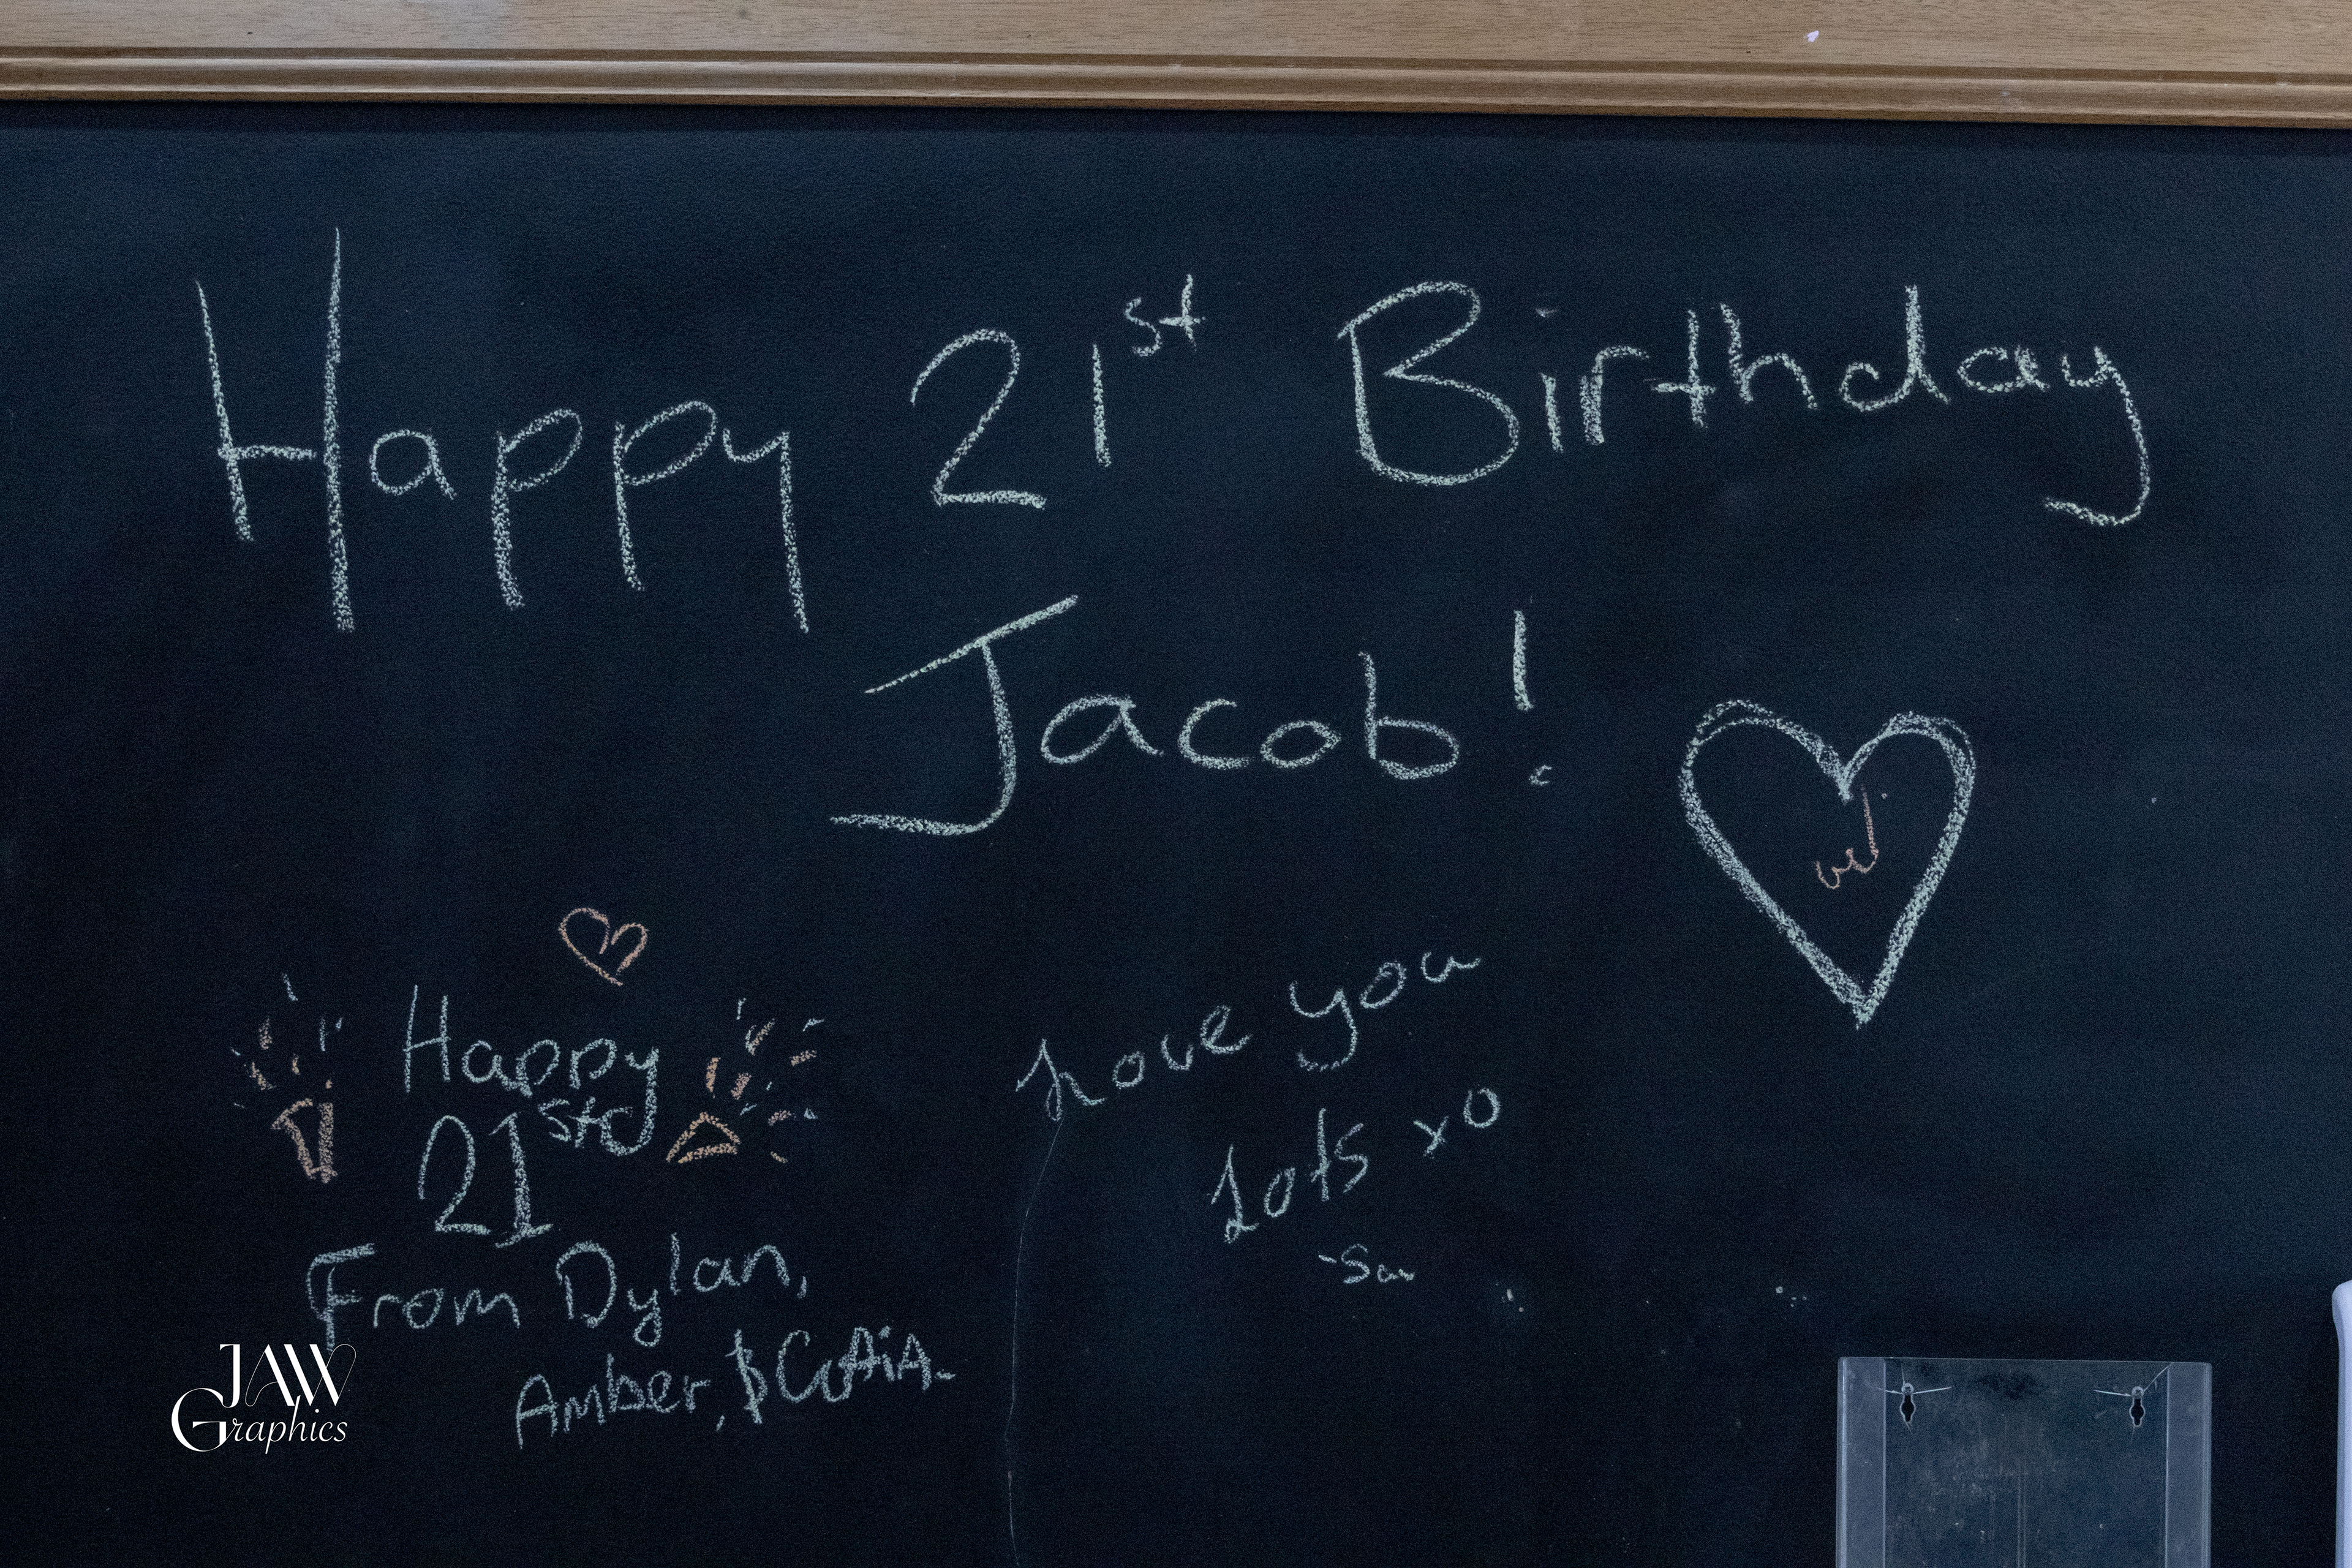 Happy 21st Birthday
Jacob!
Happy
21st
From Dylan,
Amber, &
Love you
Lots xo
JAW
Graphics